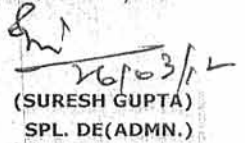 26/03/12
(SURESH GUPTA)
SPL. DE(ADMN.)